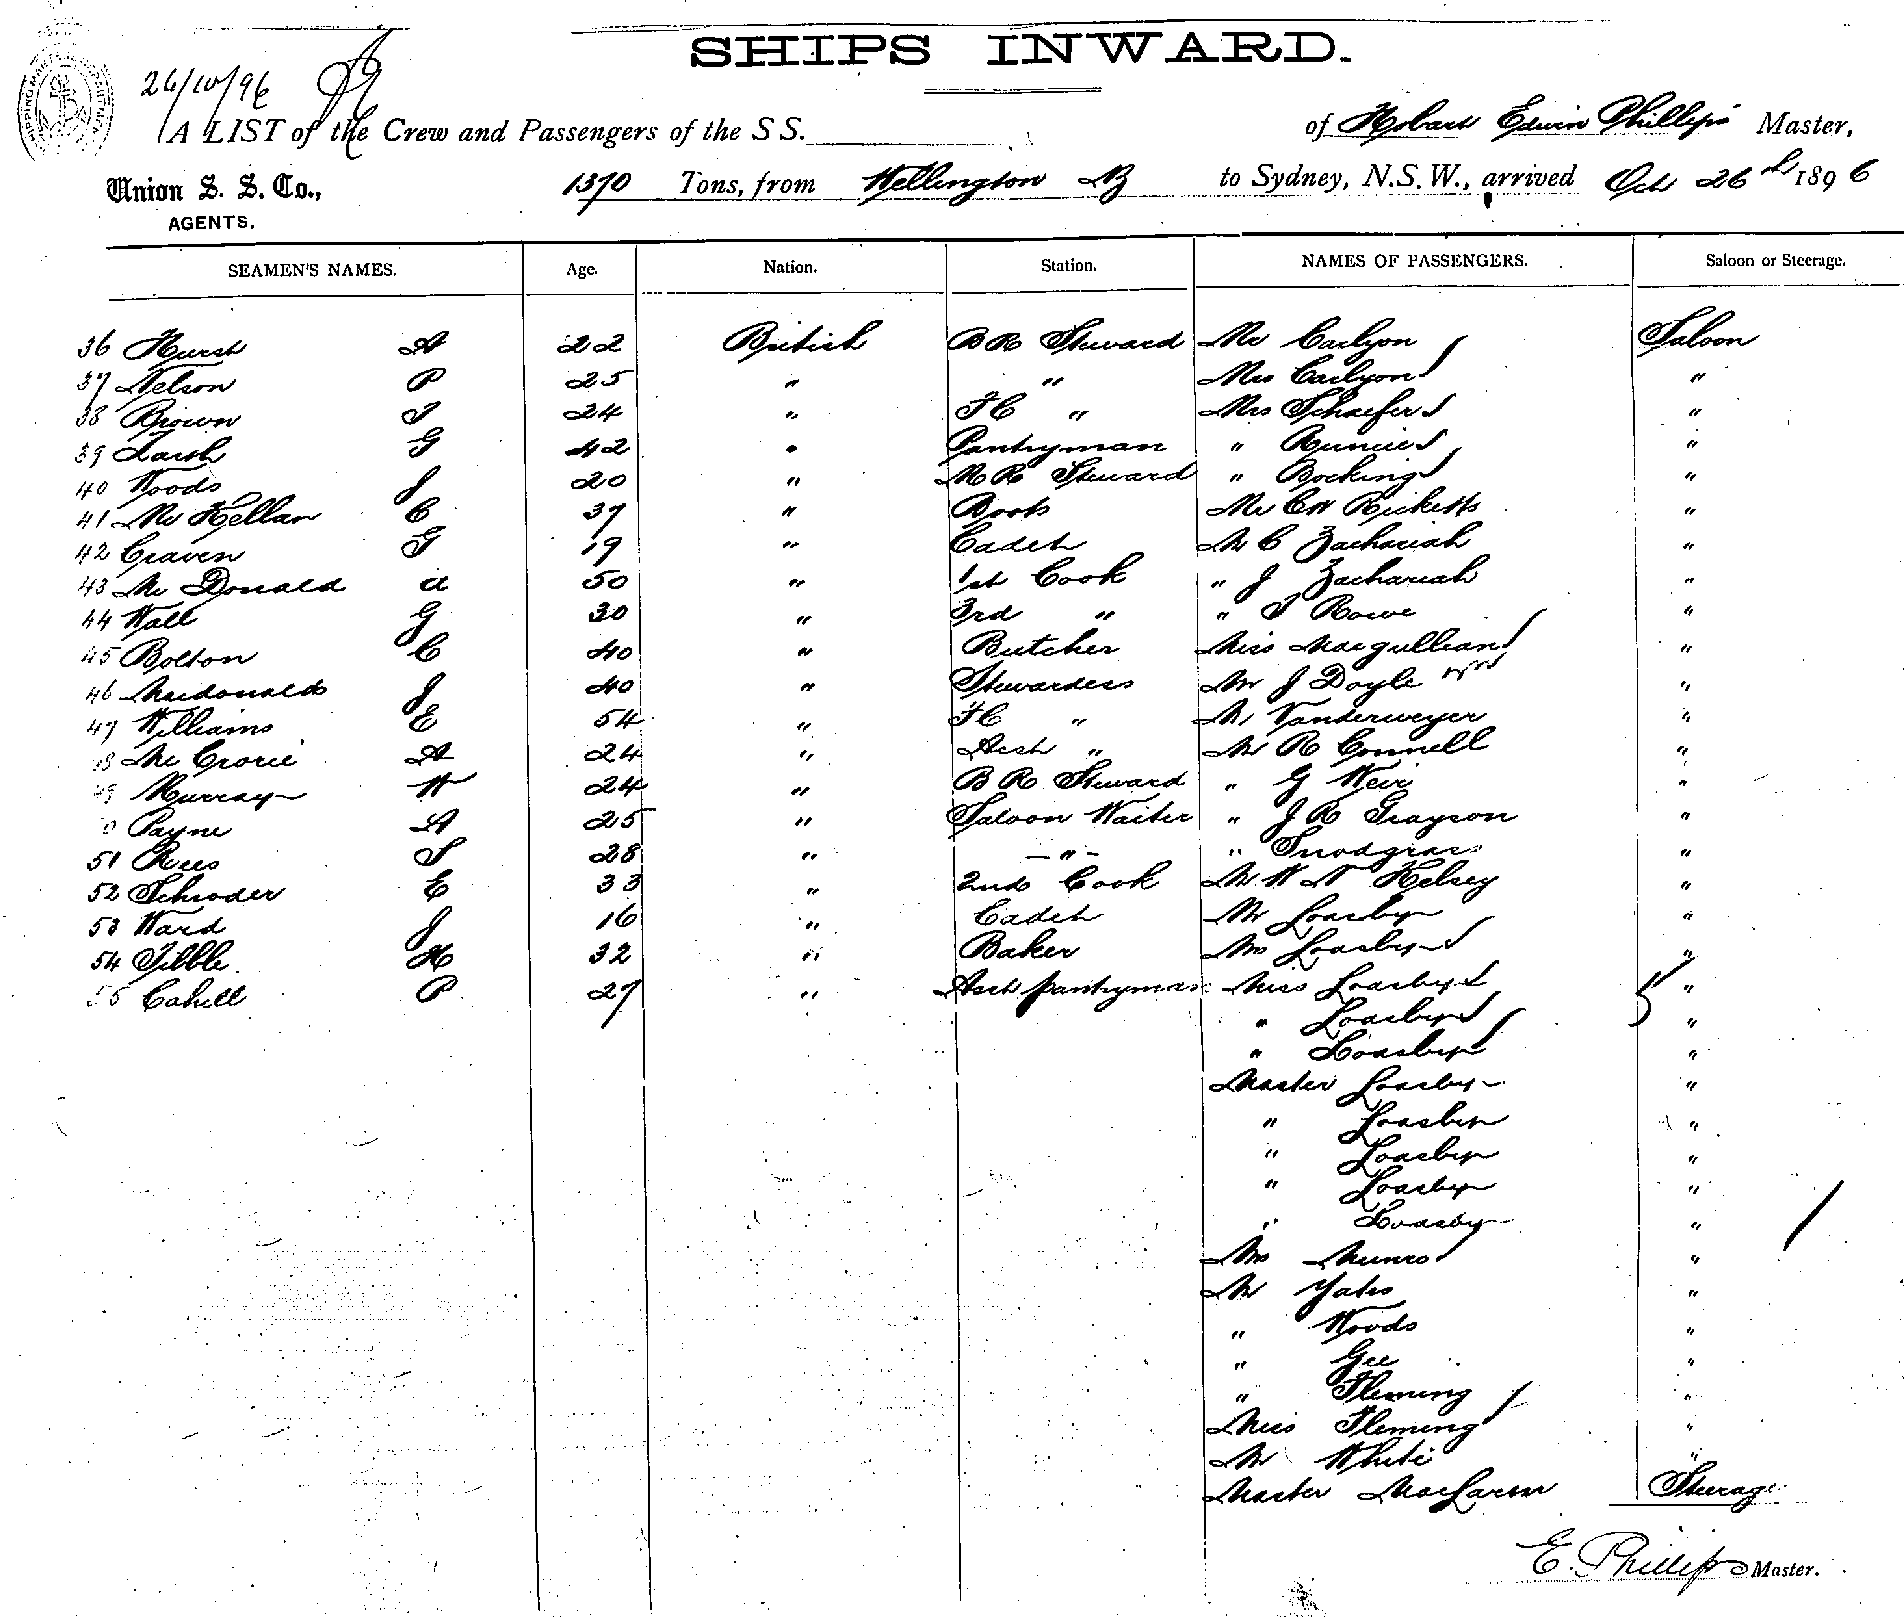 SHIPS INWARD.
26/10/96
A LIST of the Crew and Passengers of the S S. of Hobart Edwin Phillips Master,
Union S. S. Co., 1370 Tons, from Wellington NZ to Sydney, N.S.W., arrived Oct 26th 1896
AGENTS.
SEAMEN'S NAMES. Age. Nation. Station. NAMES OF PASSENGERS. Saloon or Steerage.
36 Hurst A 22 British B R Steward Mr Carlyon Saloon
37 Nelson P 25 " " Mrs Carlyon "
38 Brown T 24 " F C " Mrs Schaefer "
39 G 42 " Pantryman " Runcie "
40 Woods J 20 " M R Steward " Bocking "
41 Mc Kellan C 37 " Boots Mr C H Ricketts "
42 Craven T 19 " Cadet Mr C Zachariah "
43 Mc Donald a 50 " 1st Cook " J Zachariah "
44 Wall G 30 " 3rd " " T Rowe "
45 Bolton C 40 " Butcher Miss Macgullian "
46 Macdonald J 40 " Stewardess Mr J Doyle "
47 Williams E 54 " F C " Mr Vanderweyer "
48 Mc Crorie A 24 " Asst " Mr R Connell "
49 Murray W 24 " B R Steward " G Weir "
Payne A 25 " Saloon Waiter " J R Grayson "
51 Rees S 28 " - " - " Snodgrass "
52 Schroder E 33 " 2nd Cook Mr W N Kelsey "
53 Ward J 16 " Cadet Mr Loasby "
54 Tibble H 32 " Baker Mrs Loasby "
55 Cahill P 27 " Asst pantryman Miss Loasby "
" Loasby "
" Loasby "
Master Loasby "
" Loasby "
" Loasby "
" Loasby "
" Loasby "
Mrs Munro "
Mr Yates "
" Woods "
" Gee "
" Fleming "
Miss Fleming "
Mr White "
Master MacLaren Steerage
E. Phillips Master.